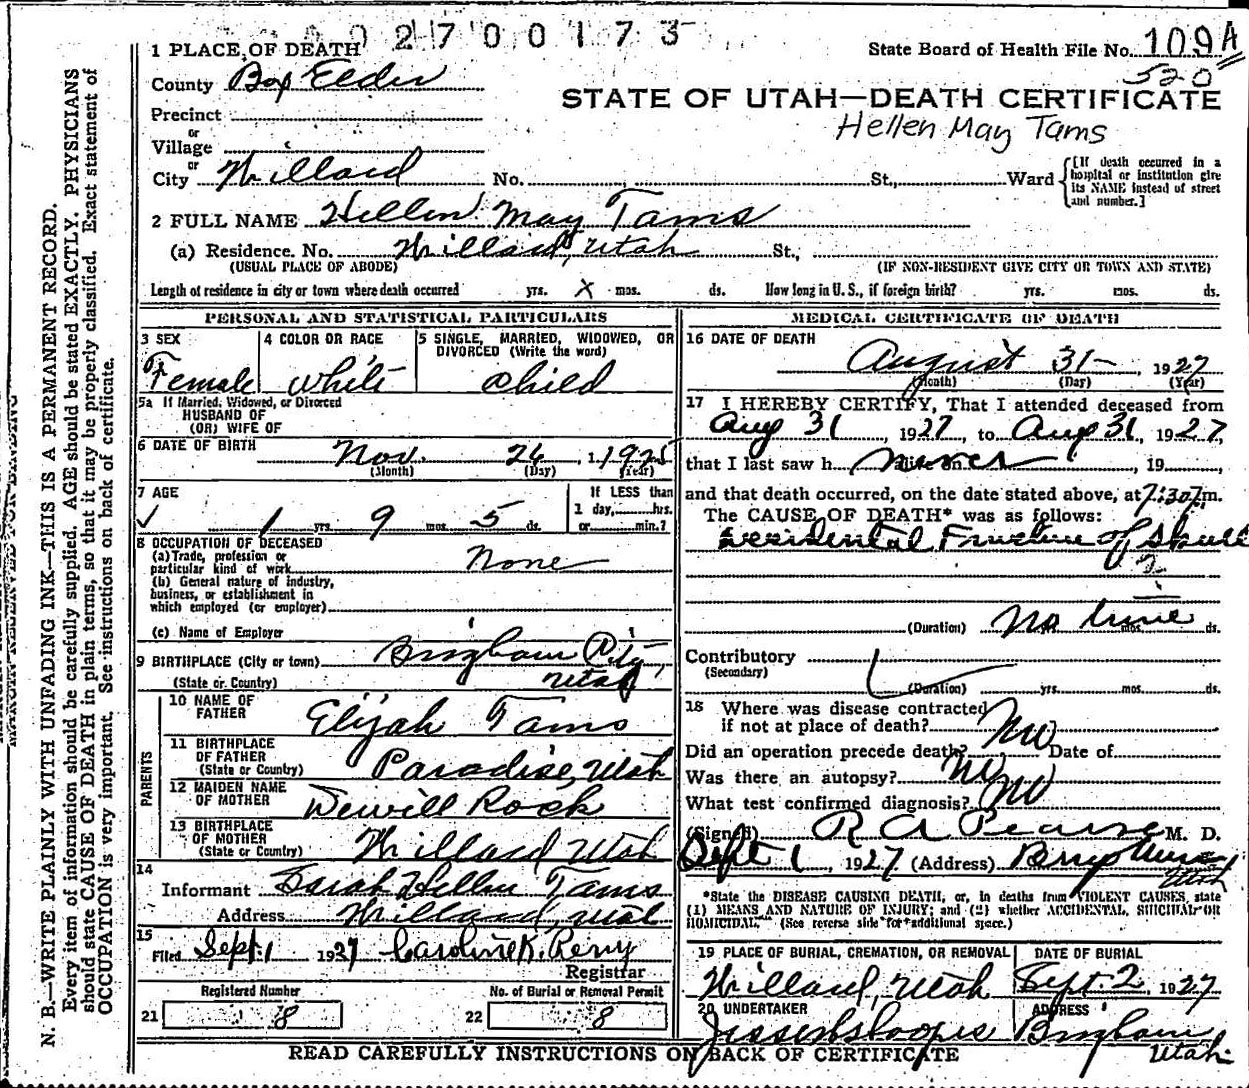 0 2 7 0 0 1 7 3
1 PLACE OF DEATH
State Board of Health File No. 109A
520
County Box Elder
STATE OF UTAH—DEATH CERTIFICATE
Hellen May Tams
Precinct
or
Village
or
City Willard No. St., Ward
[If death occurred in a hospital or institution give its NAME instead of street and number.]
2 FULL NAME Hellen May Tams
(a) Residence. No. Willard, Utah St.,
(USUAL PLACE OF ABODE) (IF NON-RESIDENT GIVE CITY OR TOWN AND STATE)
Length of residence in city or town where death occurred yrs. X mos. ds. How long in U.S., if foreign birth? yrs. mos. ds.
PERSONAL AND STATISTICAL PARTICULARS
3 SEX
Female
4 COLOR OR RACE
White
5 SINGLE, MARRIED, WIDOWED, OR DIVORCED (Write the word)
Child
5a If Married, Widowed, or Divorced
HUSBAND OF
(OR) WIFE OF
6 DATE OF BIRTH Nov. 24, 1925
(Month) (Day) (Year)
7 AGE
1 yrs. 9 mos. 5 ds.
If LESS than
1 day, hrs.
or min.?
8 OCCUPATION OF DECEASED
(a) Trade, profession or
particular kind of work None
(b) General nature of industry,
business, or establishment in
which employed (or employer)
(c) Name of Employer
9 BIRTHPLACE (City or town) Brigham City,
(State or Country) Utah
PARENTS
10 NAME OF FATHER Elijah Tams
11 BIRTHPLACE OF FATHER (State or Country) Paradise, Utah
12 MAIDEN NAME OF MOTHER Dewill Rock
13 BIRTHPLACE OF MOTHER (State or Country) Willard Utah
14
Informant Sarah Hellen Tams
Address Willard, Utah
15
Filed Sept. 1 1927 Caroline K. Perry
Registrar
Registered Number No. of Burial or Removal Permit
21 8 22 8
MEDICAL CERTIFICATE OF DEATH
16 DATE OF DEATH
August 31 — , 1927
(Month) (Day) (Year)
17 I HEREBY CERTIFY, That I attended deceased from
Aug 31, 1927, to Aug 31, 1927,
that I last saw h never alive on , 19 ,
and that death occurred, on the date stated above, at 7:30 m.
The CAUSE OF DEATH* was as follows:
Accidental Fracture of Skull
(Duration) No time mos. ds.
Contributory
(Secondary)
(Duration) yrs. mos. ds.
18 Where was disease contracted
if not at place of death? No
Did an operation precede death? No Date of
Was there an autopsy? No
What test confirmed diagnosis?
(Signed) R A Pearse M. D.
Sept 1, 1927 (Address) Utah
*State the DISEASE CAUSING DEATH, or, in deaths from VIOLENT CAUSES, state
(1) MEANS AND NATURE OF INJURY; and (2) whether ACCIDENTAL, SUICIDAL OR
HOMICIDAL. (See reverse side for additional space.)
19 PLACE OF BURIAL, CREMATION, OR REMOVAL
Willard, Utah
DATE OF BURIAL
Sept. 2, 1927
20 UNDERTAKER
ADDRESS
Brigham
Utah
READ CAREFULLY INSTRUCTIONS ON BACK OF CERTIFICATE
N. B.—WRITE PLAINLY WITH UNFADING INK—THIS IS A PERMANENT RECORD.
Every item of information should be carefully supplied. AGE should be stated EXACTLY. PHYSICIANS
should state CAUSE OF DEATH in plain terms, so that it may be properly classified. Exact statement of
OCCUPATION is very important. See instructions on back of certificate.